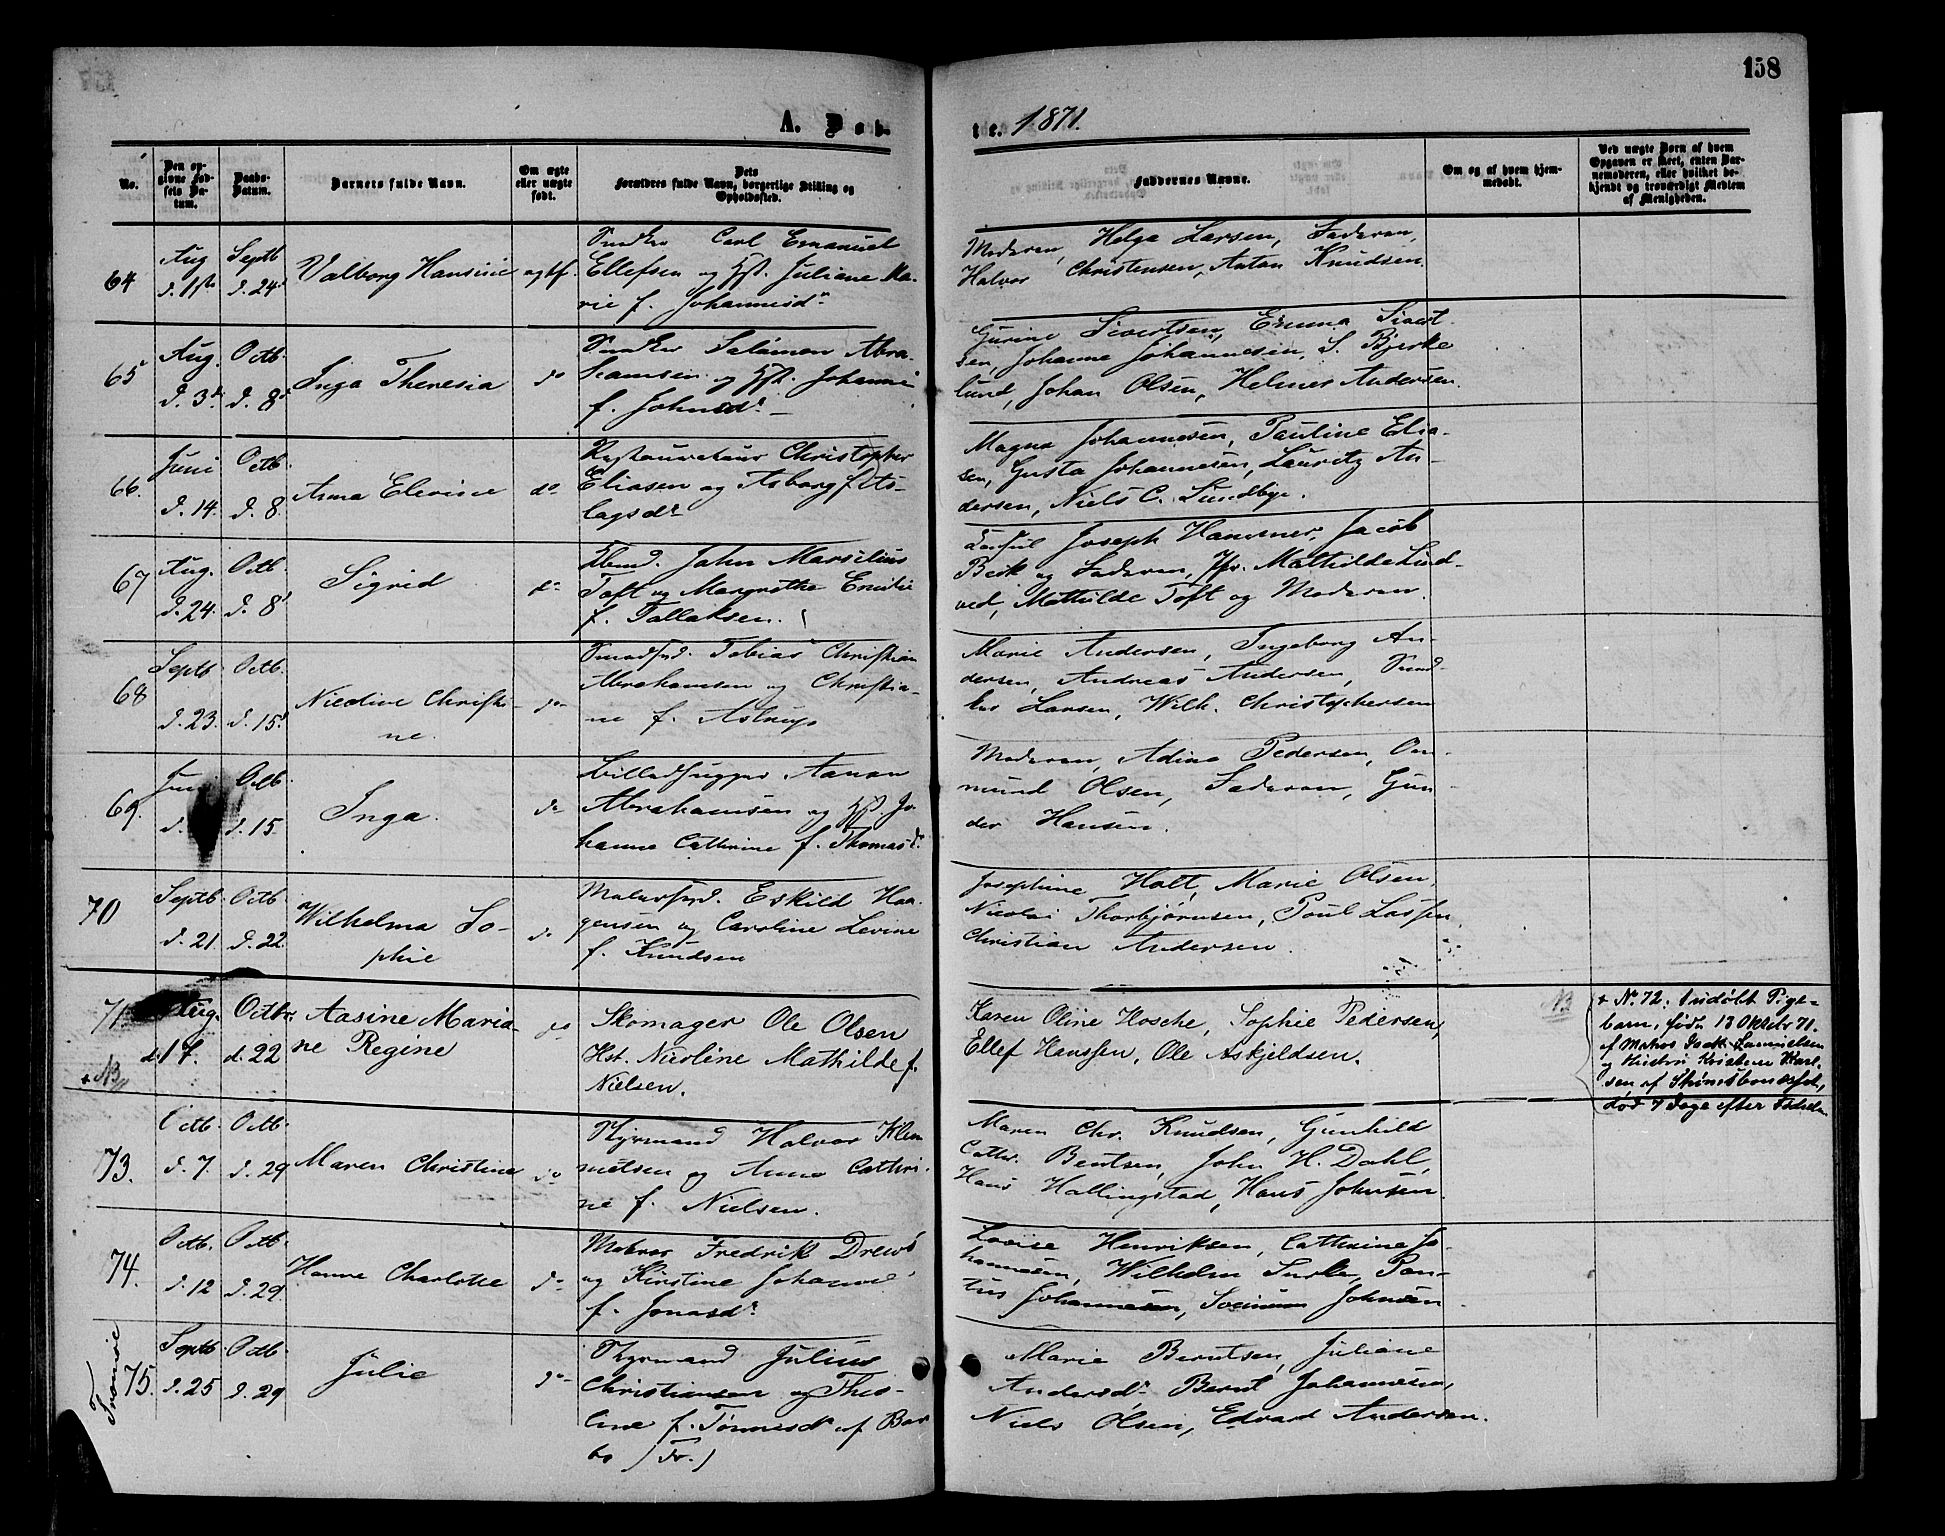 158
A. Døb-
te. 1871.
No.
Den op-
givne Fød-
sels Da-
tum.
Daabs-
Datum.
Barnets fulde Navn.
Om ægte
eller uægte
født.
Dets
Forældres fulde Navn, borgerlige Stilling og
Opholdssted.
Faddernes Navne.
Om og af hvem hjem-
medøbt.
Ved uægte Børn af hvem
Opgaven er skeet, enten Bar-
nemoderen, eller hvilket be-
kjendt og troværdigt Medlem
af Menigheden.
64
Aug
d. 1ste
Septb
d. 24d
Valborg Hansine
ægtef.
Snedker Carl Emanuel
Ellefsen og Hst. Juliane Ma-
rie f. Johannesdr
Moderen, Helga Larsen, Faderen,
Halvor Christensen, Anton Knudsen.
65
Aug.
d. 3d
Octb.
d. 8d
Inga Theresia
do
Snedker Salamon Abra-
hamsen og Hst. Johanne
f. Johnsdr
Gurine Sivertsen, Emma Sivert-
sen, Johanne Johannesen, S. Bjerke-
lund, Johan Olsen, Helmer Andersen.
66.
Juni
d. 14.
Octb.
d. 8.
Anna Elevine
do
Restaurateur Christopher
Eliasen og Asborg f. As-
lagsdr
Magna Johannesen, Pauline Elia-
sen, Gusta Johannesen, Lauritz An-
dersen, Niels C. Lundbye.
67
Aug.
d. 24.
Octb.
d. 8d
Sigrid
do
John Marselius
Toft og Margrethe Emilie
f. Tallaksen.
Joseph Jacob
Beck og Faderen, Jfr. Mathilde Lind-
ved, Mathilde Toft og Moderen.
68
Septb
d. 23.
Octb.
d. 15d
Nicoline Christi-
ne.
do
Tobias Christian
Abrahamsen og Christia-
ne f. Astrup
Marie Andersen, Ingeborg An-
dersen, Andreas Andersen, Sned-
ker Larsen, Wilh. Christophersen
69.
d.
Octb.
d. 15.
Inga.
do
Aanon
Abrahamsen og Hst. Jo-
hanne Cathrine f. Thomasdr
Moderen, Adina Pedersen, Om-
mund Olsen, Faderen, Gun-
der Hansen.
70
Septb.
d. 21
Octb.
d. 22.
Wilhelma So-
phie
do
Malersvd. Eskild Haa-
gensen og Caroline Levine
f. Knudsen
Josephine Holt, Marie Olsen,
Nicolai Thorbjørnsen, Poul Lassen
Christian Andersen.
71
Aug.
d. 17.
Octbr.
d. 22
Aasine Maria-
ne Regine
do
Skomager Ole Olsen
Hst. Nicoline Mathilde f.
Nielsen.
Karen Oline Hosche, Sophie Pedersen,
Ellef Hanssen, Ole Askjeldsen.
NB
+ No. 72. Inddøbt Pige-
barn, født 13 Oktbr 71.
af Matros Isak Samuelsen
og Hustru Kristine Karl-
sen af
død 7 Dage efter Fødselen
+ NB
73.
Octb.
d. 7
Octb.
d. 29
Maren Christine
do
Styrmand Halvor Klem-
metsen og Anne Cathri-
ne f. Nielsen.
Maren Chr. Knudsen, Gunhild
Cathr. Bentsen, John H. Dahl,
Hans Hallingstad, Hans Johnsen.
74.
Octb.
d. 12
Octb.
d. 29.
Hanne Charlotte
do
Matros Fredrik Drews
og Kirstine Johanne
f. Jonasdr
Lovise Henriksen, Cathrine Jo-
hannesen, Wilhelm Pon-
tus Johannesen, Johnsen
Tromsøe
75.
Septb.
d. 25
Octb.
d. 29
Julie
do
Styrmand Julius
Christiansen og Theo-
line f. Tønnesdr af Bar-
bo (Tr.)
Marie Berntsen, Juliane
Andersdr Bernt Johannesen,
Niels Olsen, Edvard Andersen.